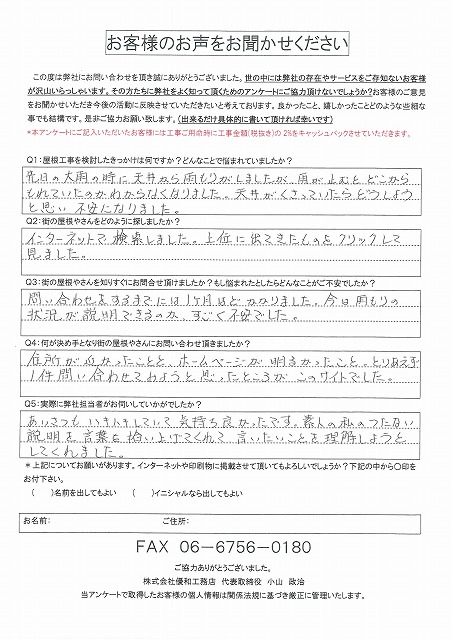 お客様のお声をお聞かせください
この度は弊社にお問い合わせを頂き誠にありがとうございました。世の中には弊社の存在やサービスをご存知ないお客様
が沢山いらっしゃいます。その方たちに弊社をよく知って頂くためのアンケートにご協力頂けないでしょうか?お客様のご意見
をお聞かせいただき今後の活動に反映させていただきたいと考えております。良かったこと、嬉しかったことどのような些細な
事でも結構です。是非ご協力お願い致します。(出来るだけ具体的に書いて頂ければ幸いです)
*本アンケートにご記入いただいたお客様には工事ご用命時に工事金額(税抜き)の2%をキャッシュバックさせていただきます。
Q1:屋根工事を検討したきっかけは何ですか?どんなことで悩まれていましたか?
先日の大雨の時に天井から雨もりがしましたが、雨が止むとどこから
もれていたのかわからなくなりました。天井がくさっていたらどうしよう
と思い不安になりました。
Q2:街の屋根やさんをどのように探しましたか?
インターネットで検索しました。上位に出てきたものをクリックして
見ました。
Q3:街の屋根やさんを知りすぐにお問合せ頂けましたか?もし悩まれたとしたらどんなことがご不安でしたか?
問い合わせをするまでには1ケ月ほどかかりました。今日雨もりの
状況が説明できるのか、すごく不安でした。
Q4:何が決め手となり街の屋根やさんにお問い合わせ頂きましたか?
住所が近かったことと、ホームページが明るかったこと。とりあえず
1件問い合わせてみようと思ったところがこのサイトでした。
Q5:実際に弊社担当者がお伺いしていかがでしたか?
あいさつもハキハキしていて気持ち良かったです。素人の私のつたない
説明を言葉を拾い上げてくれて言いたいことを理解しようと
してくれました。
*上記についてお願いがあります。インターネットや印刷物に掲載させて頂いてもよろしいでしょうか?下記の中から〇印を
お付下さい。
( )名前を出してもよい ( )イニシャルなら出してもよい
お名前: ご住所:
FAX 06-6756-0180
ご協力ありがとうございました。
株式会社優和工務店 代表取締役 小山 政治
当アンケートで取得したお客様の個人情報は関係法規に基づき厳正に管理いたします。